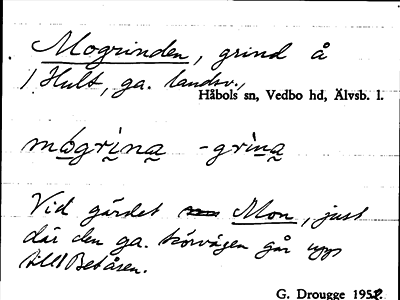 Mogrinden, grind å
1 Hult, ga. landsv.,
Håbols sn, Vedbo hd, Älvsb. l.
mógrina -grina
Vid gärdet Mon, just
där den ga. körvägen går upp
till Betåsen.
G. Drougge 1952.